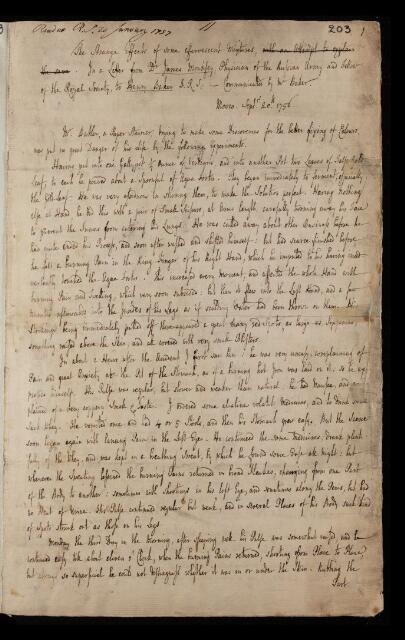 Read R.S. 20 January 1757
11
203
1
The Strange Effects of some effervescent Mixtures,
In a Letter from Dr James Mounsey, Physician of the Russian Army and Fellow
of the Royal Society, to Henry Baker F.R.S. — Communicated by Mr Baker.
Moscow. Sept. 20th 1756
Mr. Butler, a Paper Stainer, trying to make some Discoveries for the better fixing of Colours,
was put in great Danger of his Life by the following experiments.
Having put into one Gallypot ½ Ounce of Verdegris, and into another Pot two Leaves of false Gold
Leaf; to each he poured about a spoonful of Aqua Fortis. They began immediately to ferment, especially
the Gold-leaf. He was very attentive in stirring them, to make the Solution perfect. Having Nothing
else at Hand he did this with a pair of Small Scissars, at Arms length, carefully turning away his Face
to prevent the Fumes from entering his Lungs. He was called away about other Business before he
had made ended his Process, and soon after washed and shifted himself: but had scarce finished before
he felt a burning Pain in the Ring Finger of his Right Hand, which he imputed to his having inad-
vertently touched the Aqua Fortis. This increased every Moment, and affected the whole Hand with
burning Pain and Swelling, which very soon subsided: but then it flew into the Left Hand, and a few
Minutes afterwards into the Insides of his Legs as if scalding Water had been thrown on them. His
Stockings being immediately pulled off there appeared a great many red Spots, as large as Sixpences,
something raised above the Skin, and all covered with very small Blisters.
In about 2 Hours after the Accident I first saw him: he was very uneasy, complaining of
Pain and great Anxiety, at the Pit of the Stomach, as if a burning hot Iron was laid on it, so he ex-
pressed himself. His Pulse was regular, but slower and weaker than natural: he had Nausea, and com-
plained of a very coppery Smack & Taste. I ordered some alcaline volatile Medicines, and to Drink some
Sack Whey. He vomited once, and had 4 or 5 Stools, and then his Stomach grew easy. But the Scene
soon began again with burning Pain in the Left Eye. He continued the same Medicines, drank plenti-
fully of the Whey, and was kept in a breathing Sweat, by which he found some Ease all night: but
whenever the Sweating lessened the burning Pains returned in broad Flashes, changing from one Part
of the Body to another: sometimes with Shootings in his left Eye, and sometimes along the Penis, but had
no Heat of Urine. His Pulse continued regular but weak, and in several Places of his Body such kind
of Spots struck out as those on his Legs.
Monday the third Day in the Morning, after sleeping well, his Pulse was somewhat raised, and he
continued easy till about eleven o' Clock, when the burning Pains returned, shooting from Place to Place,
but always so superficial he could not distinguish whether it was in or under the Skin. Rubbing the
Part